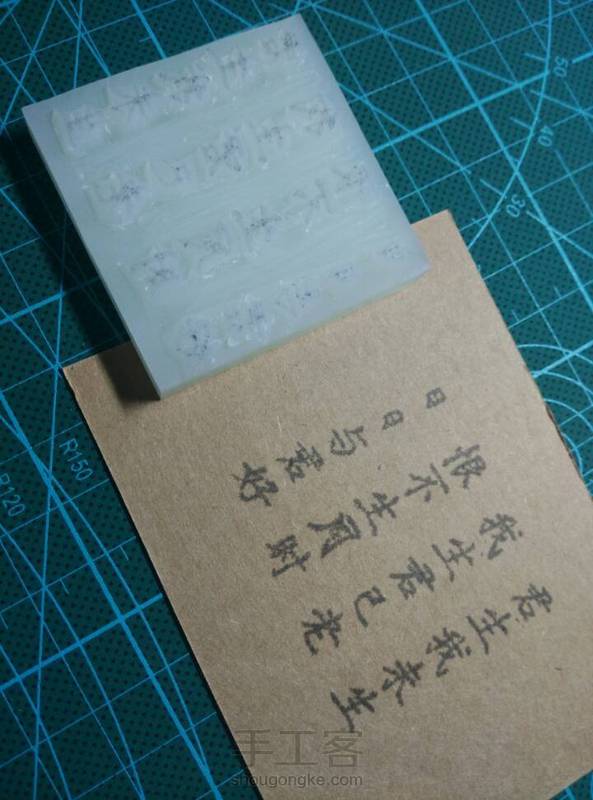 君生我未生
我生君已老
恨不生同时
日日与君好
50
40
30
R150
R120
手工客
shougongke.com